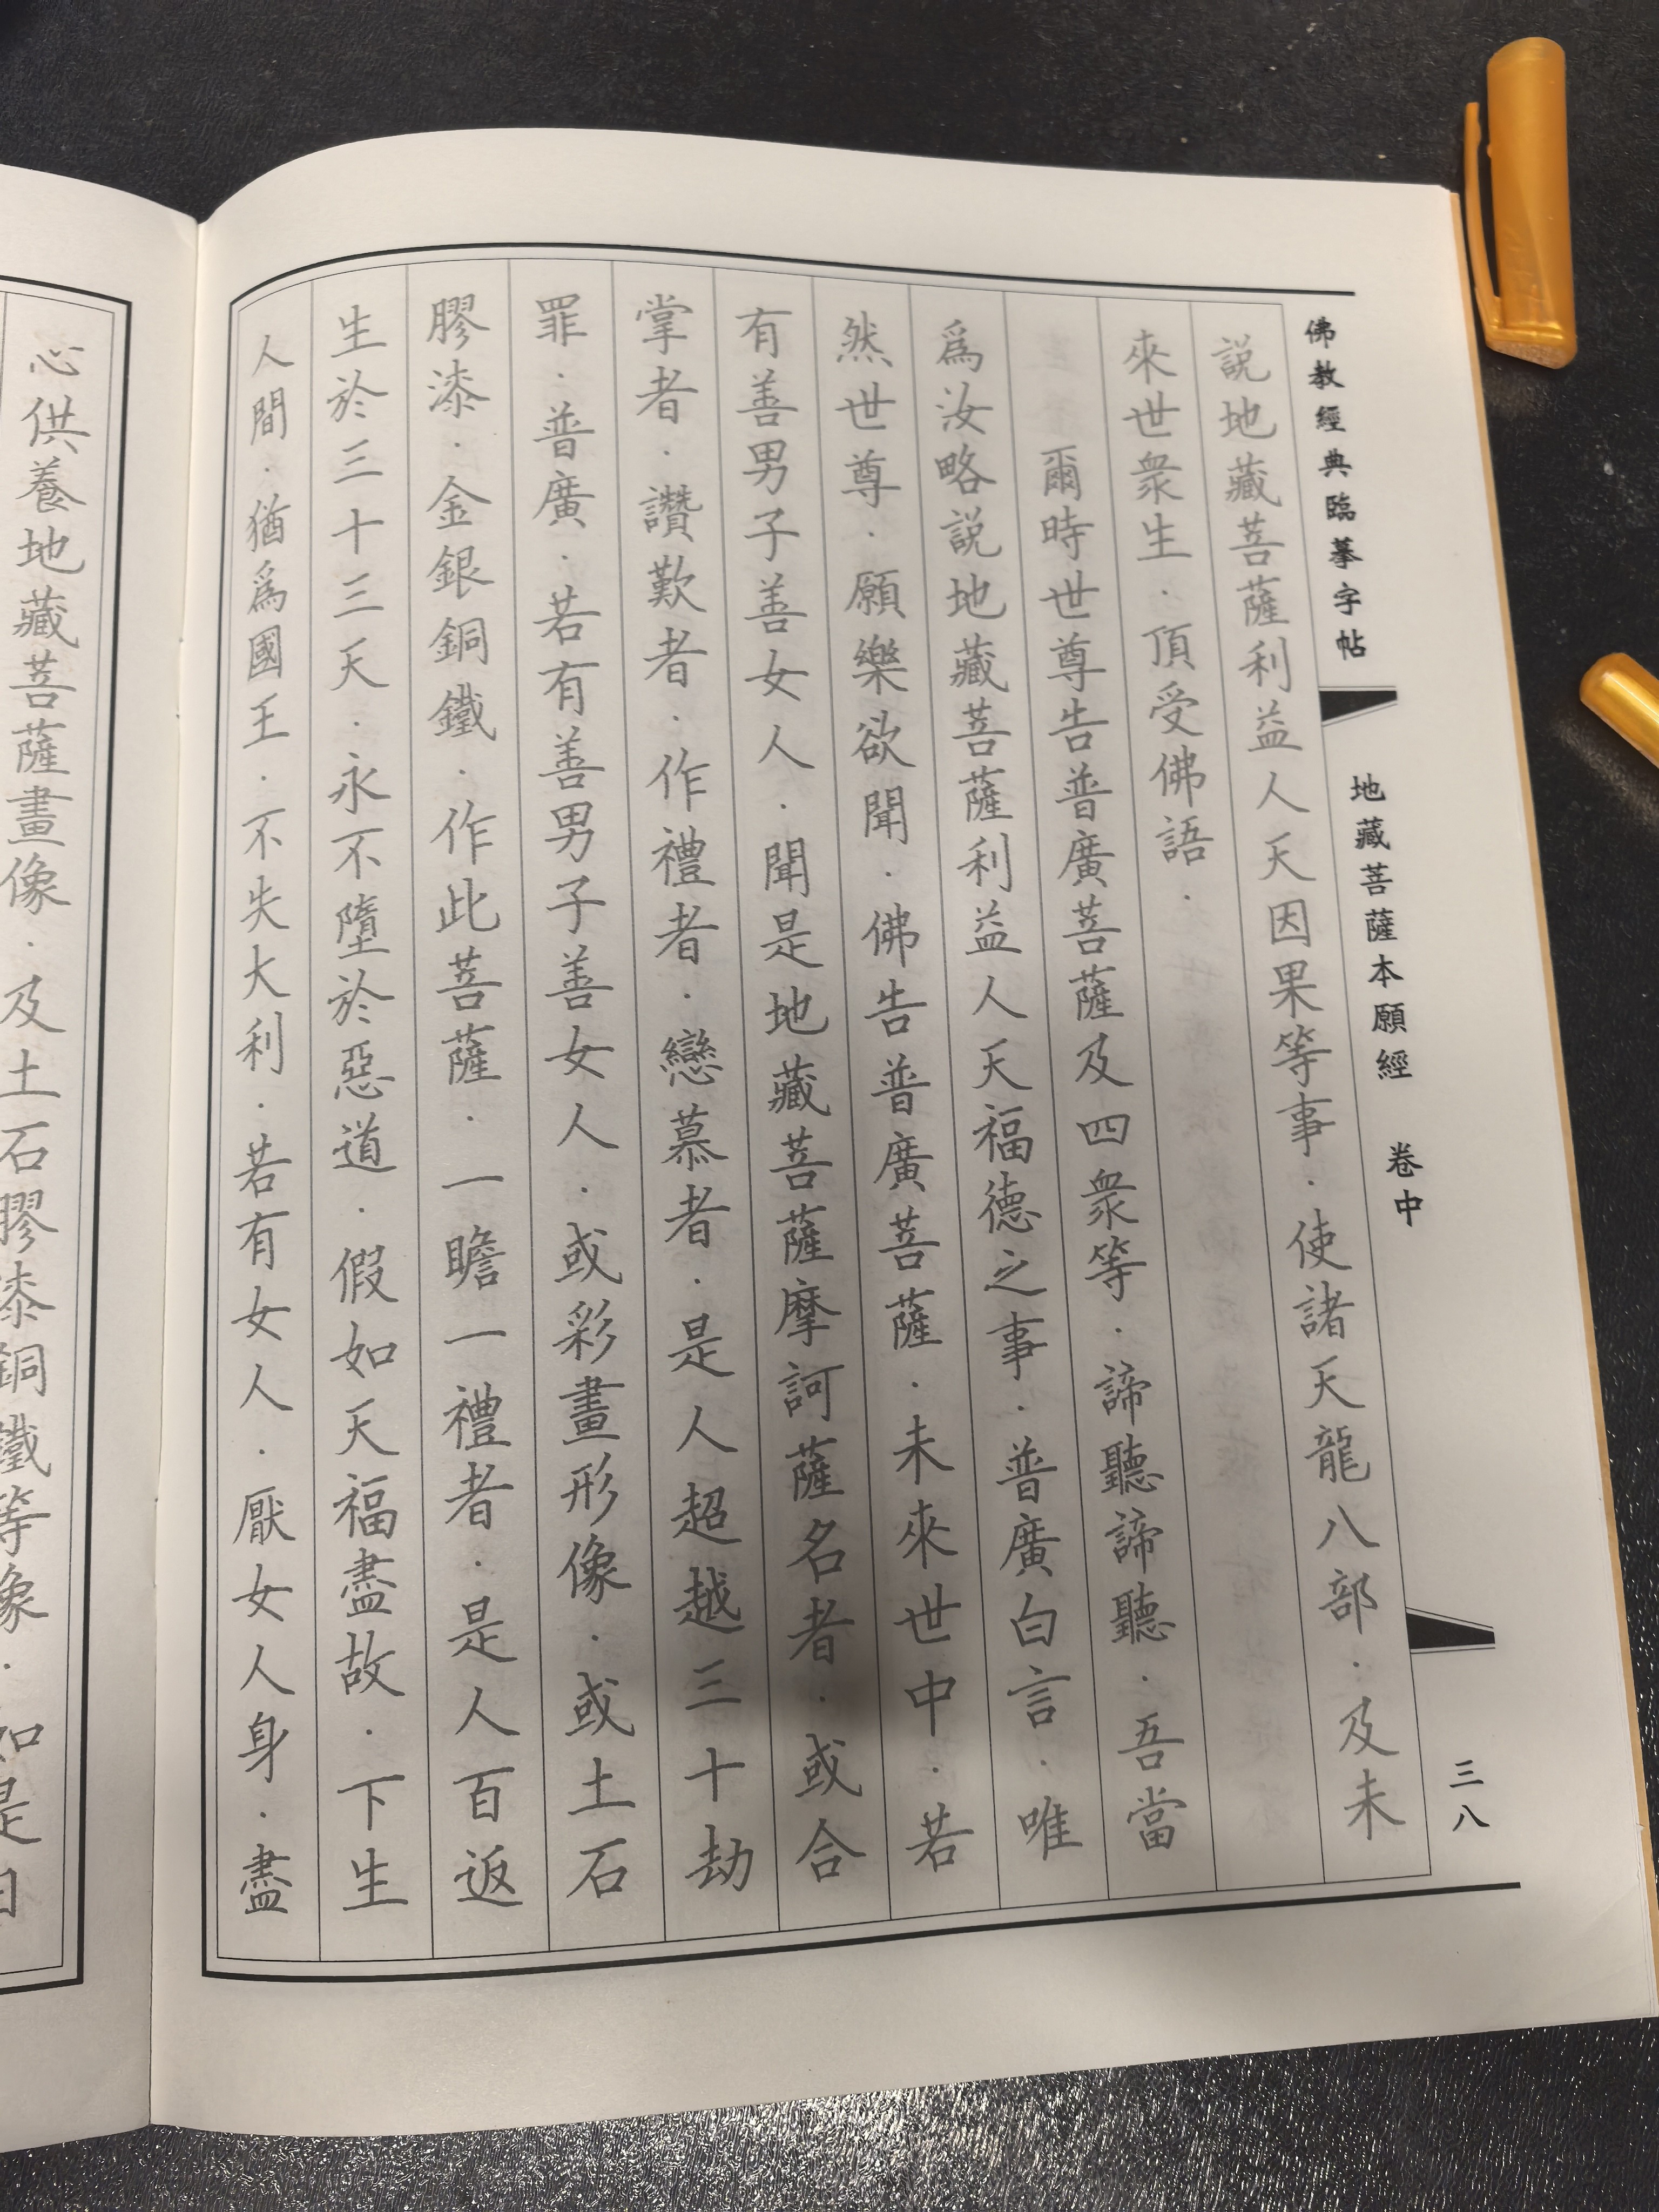 佛教經典臨摹字帖
地藏菩薩本願經 卷中
三八
説地藏菩薩利益人天因果等事．使諸天龍八部．及未
來世衆生．頂受佛語．
爾時世尊告普廣菩薩及四衆等．諦聽諦聽．吾當
爲汝略説地藏菩薩利益人天福德之事．普廣白言．唯
然世尊．願樂欲聞．佛告普廣菩薩．未來世中．若
有善男子善女人．聞是地藏菩薩摩訶薩名者．或合
掌者．讚歎者．作禮者．戀慕者．是人超越三十劫
罪．普廣．若有善男子善女人．或彩畫形像．或土石
膠漆．金銀銅鐵．作此菩薩．一瞻一禮者．是人百返
生於三十三天．永不墮於惡道．假如天福盡故．下生
人間．猶爲國王．不失大利．若有女人．厭女人身．盡
心供養地藏菩薩畫像．及土石膠漆銅鐵等像．如是日